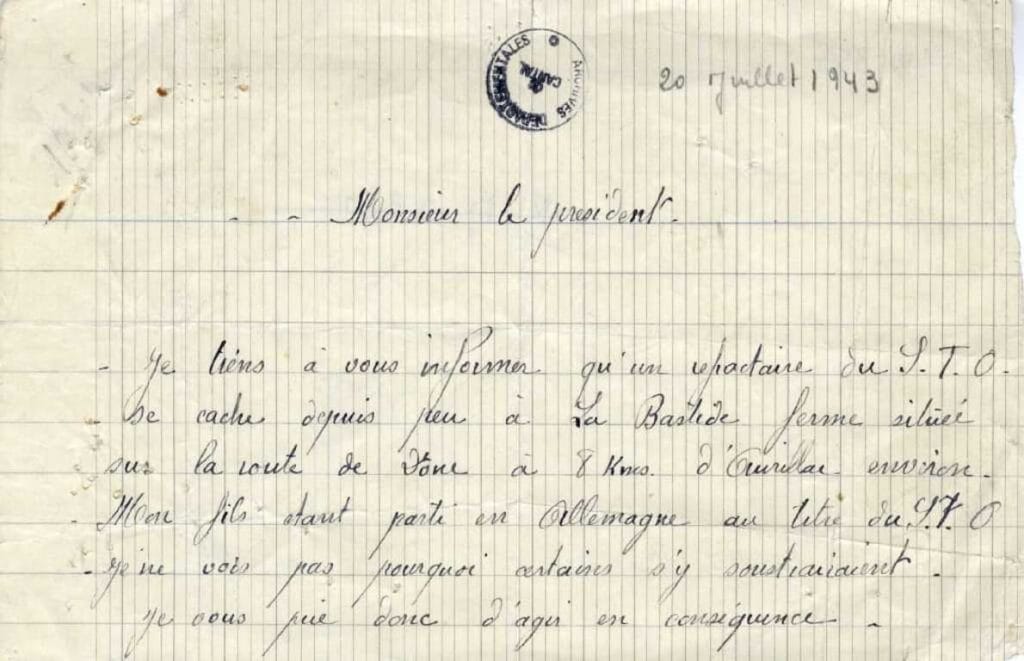 ARCHIVES DÉPARTEMENTALES
CANTAL
20 Juillet 1943
- - Monsieur le president.
- Je tiens à vous informer qu'un refactaire du S.T.O.
se cache depuis peu à La Bastide ferme située
sur la route de à 8 Kms. d'Aurillac environ.
- Mon fils etant parti en Allemagne au titre du S.T.O
- Je ne vois pas pourquoi certaines s'y soustrairaient.
Je vous prie donc d'agir en conséquence -